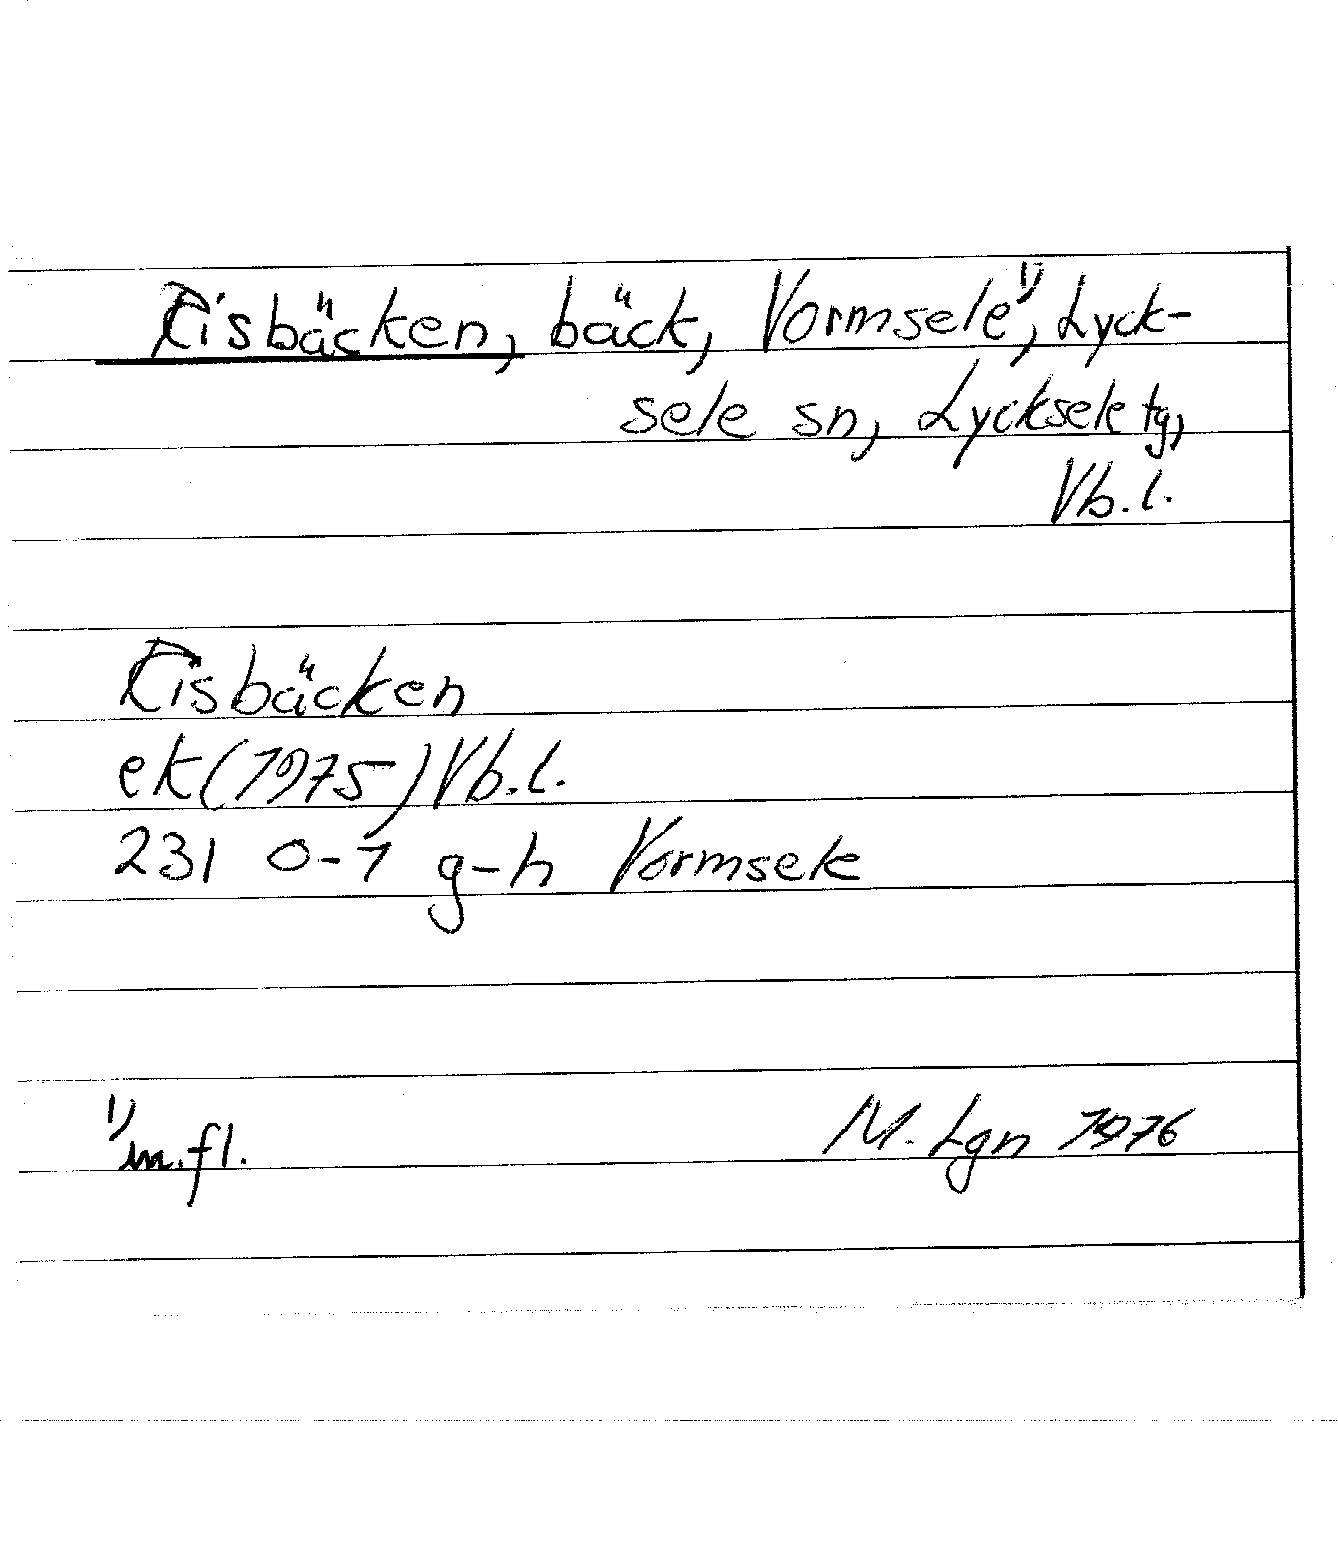 Risbäcken, bäck, Vormsele¹⁾, Lyck-
sele sn, Lycksele tg,
Vb.l.
Risbäcken
ek (1975) Vb.l.
231 0-1 g-h Vormsele
¹⁾ m.fl.
M. Lgn 1976